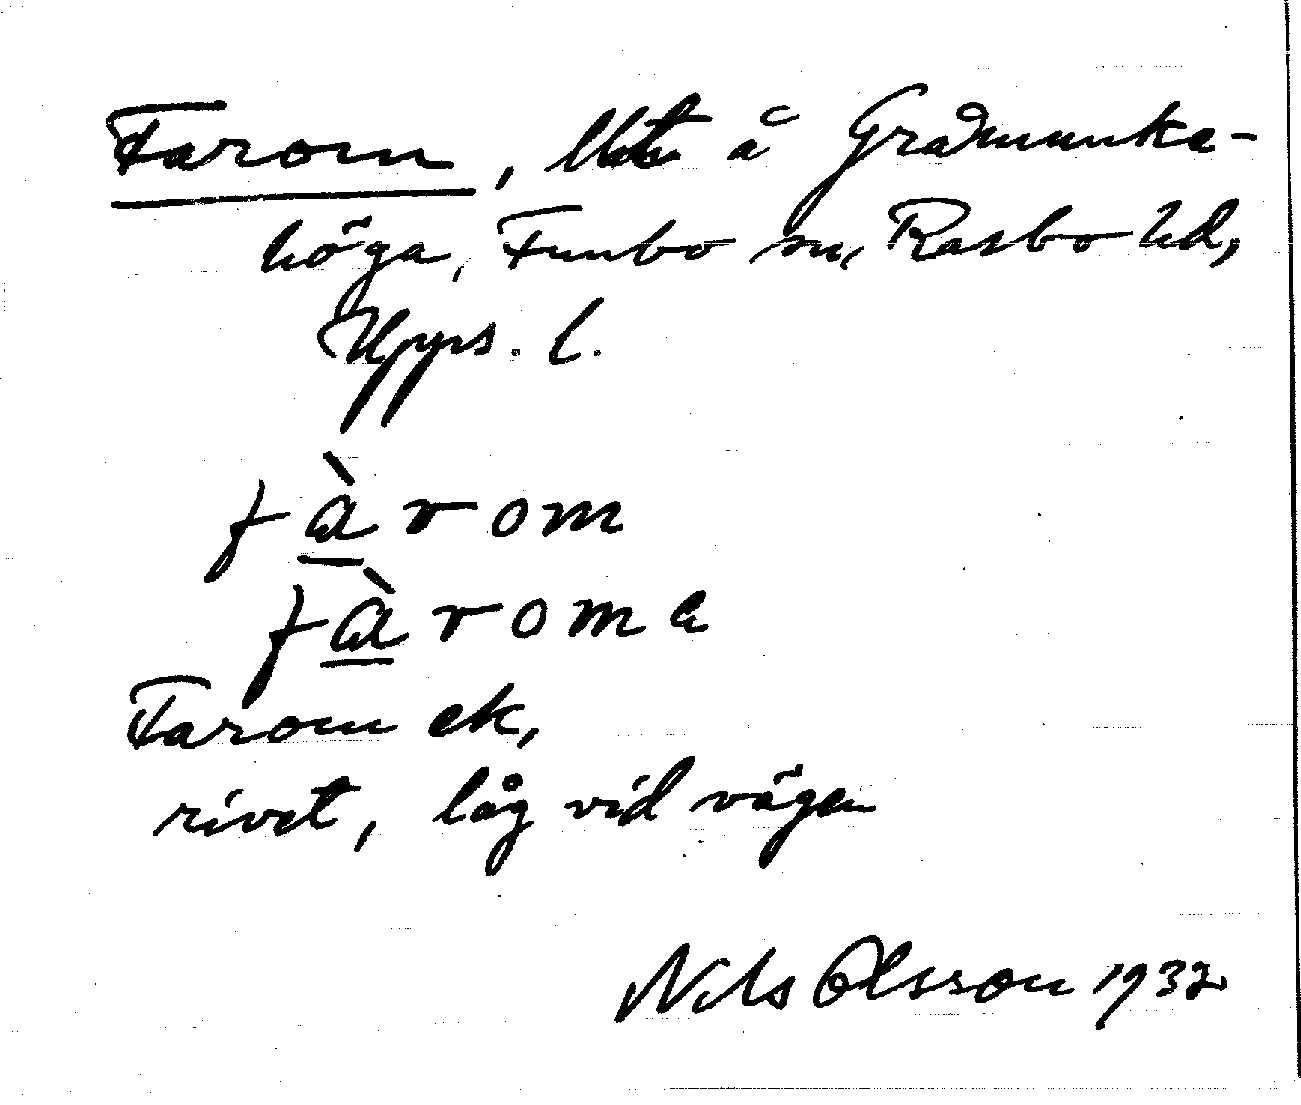 Farom, lht å Gramunke-
höga, Funbo sn, Rasbo hd,
Upps. l.
fàrom
fàroma
Farom ek,
rivet, låg vid vägen
Nils Olsson 1932